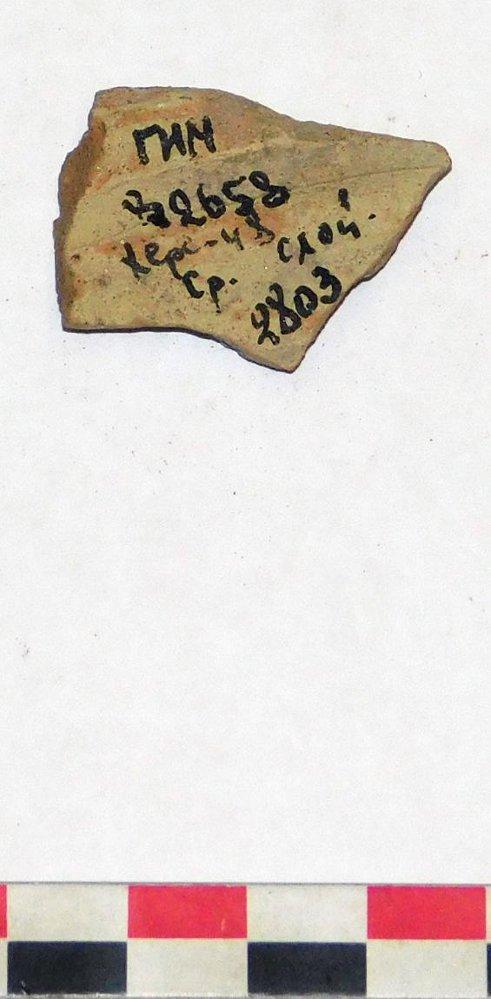 ГИМ
82658
Херс-43
ср. слой.
2803